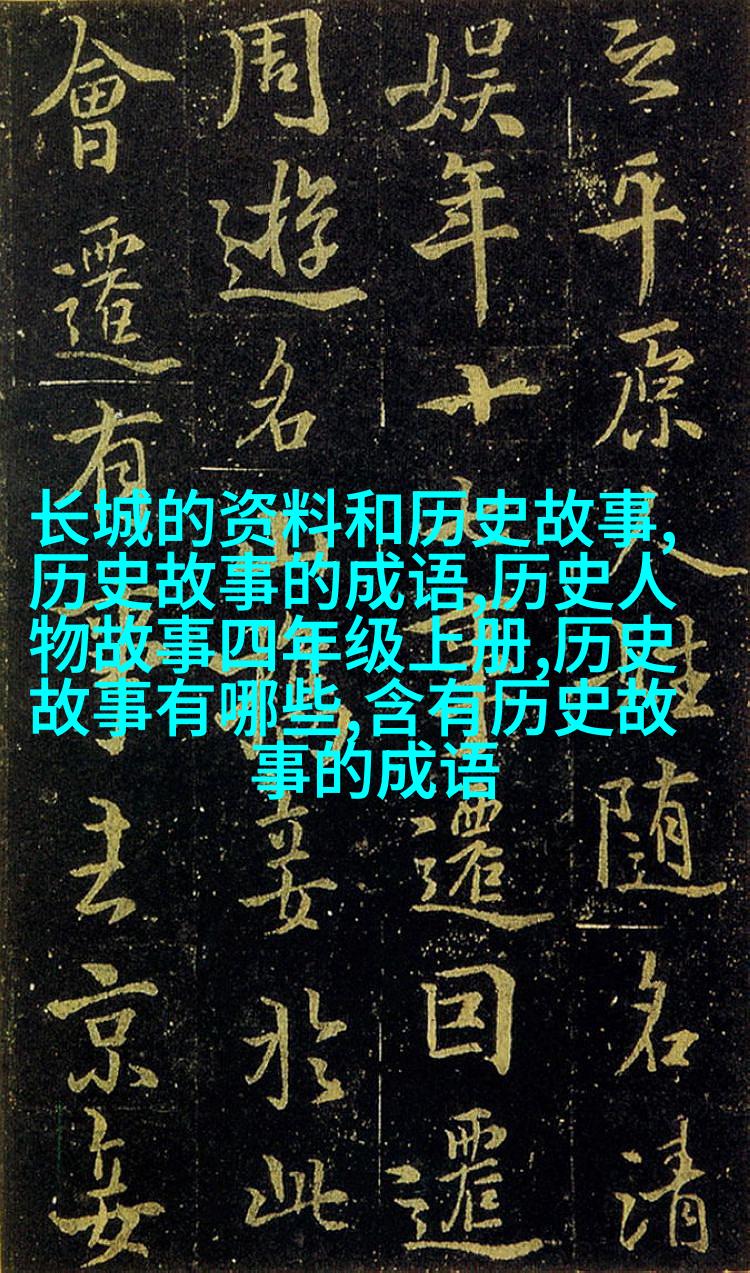 长城的资料和历史故事,
历史故事的成语,历史人
物故事四年级上册,历史
故事有哪些,含有历史故
事的成语
之平原人姓随名清
娱年十遷回遷
周遊名山妾於此
會遷有去京妾